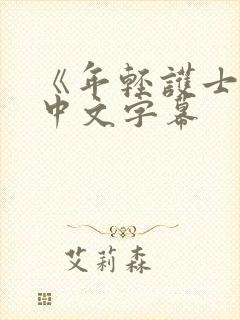 《年轻護士
中文字幕
艾莉森